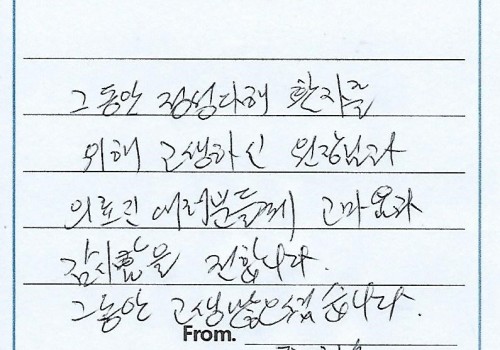 그동안 정성다해 환자를
위해 고생하신 원장님과
의료진 여러분들께 고마움과
감사함을 전합니다.
그동안 고생많으셨습니다.
From.